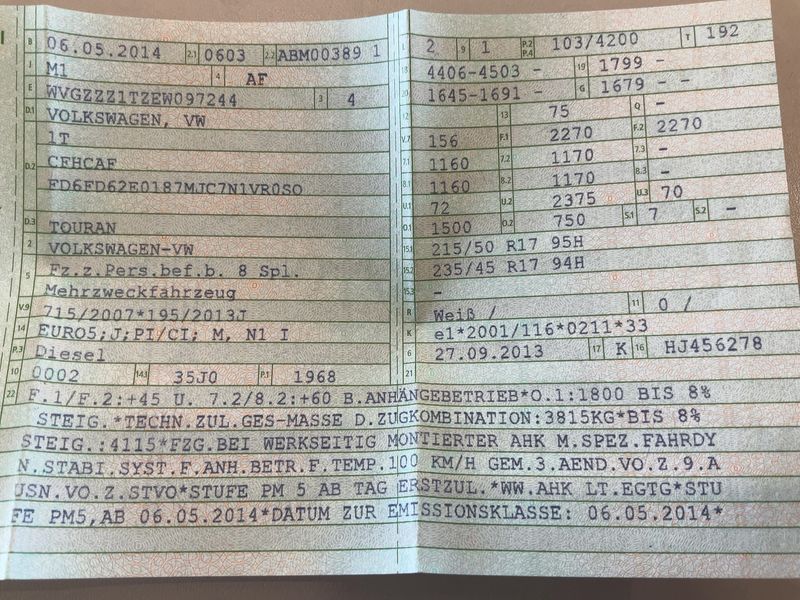 B 06.05.2014 2.1 0603 2.2 ABM00389 1
J M1 4 AF
E WVGZZZ1TZEW097244 3 4
D.1 VOLKSWAGEN, VW
1T
D.2 CFHCAF
FD6FD62E0187MJC7N1VR0SO
D.3 TOURAN
2 VOLKSWAGEN-VW
5 Fz.z.Pers.bef.b. 8 Spl.
Mehrzweckfahrzeug
V.9 715/2007*195/2013J
14 EURO5;J;PI/CI; M, N1 I
P.3 Diesel
10 0002 14.1 35J0 P.1 1968
L 2 9 1 P.2 P.4 103/4200 T 192
18 4406-4503 - 19 1799 -
20 1645-1691 - G 1679 - -
12 13 75 Q -
V.7 156 F.1 2270 F.2 2270
7.1 1160 7.2 1170 7.3 -
8.1 1160 8.2 1170 8.3 -
U.1 72 U.2 2375 U.3 70
O.1 1500 O.2 750 S.1 7 S.2 -
15.1 215/50 R17 95H
15.2 235/45 R17 94H
15.3 -
R Weiß / 11 0 /
K e1*2001/116*0211*33
6 27.09.2013 17 K 16 HJ456278
21
22 F.1/F.2:+45 U. 7.2/8.2:+60 B.ANHÄNGEBETRIEB*O.1:1800 BIS 8%
STEIG.*TECHN.ZUL.GES-MASSE D.ZUGKOMBINATION:3815KG*BIS 8%
STEIG.:4115*FZG.BEI WERKSEITIG MONTIERTER AHK M.SPEZ.FAHRDY
N.STABI.SYST.F.ANH.BETR.F.TEMP.100 KM/H GEM.3.AEND.VO.Z.9.A
USN.VO.Z.STVO*STUFE PM 5 AB TAG ERSTZUL.*WW.AHK LT.EGTG*STU
FE PM5,AB 06.05.2014*DATUM ZUR EMISSIONSKLASSE: 06.05.2014*